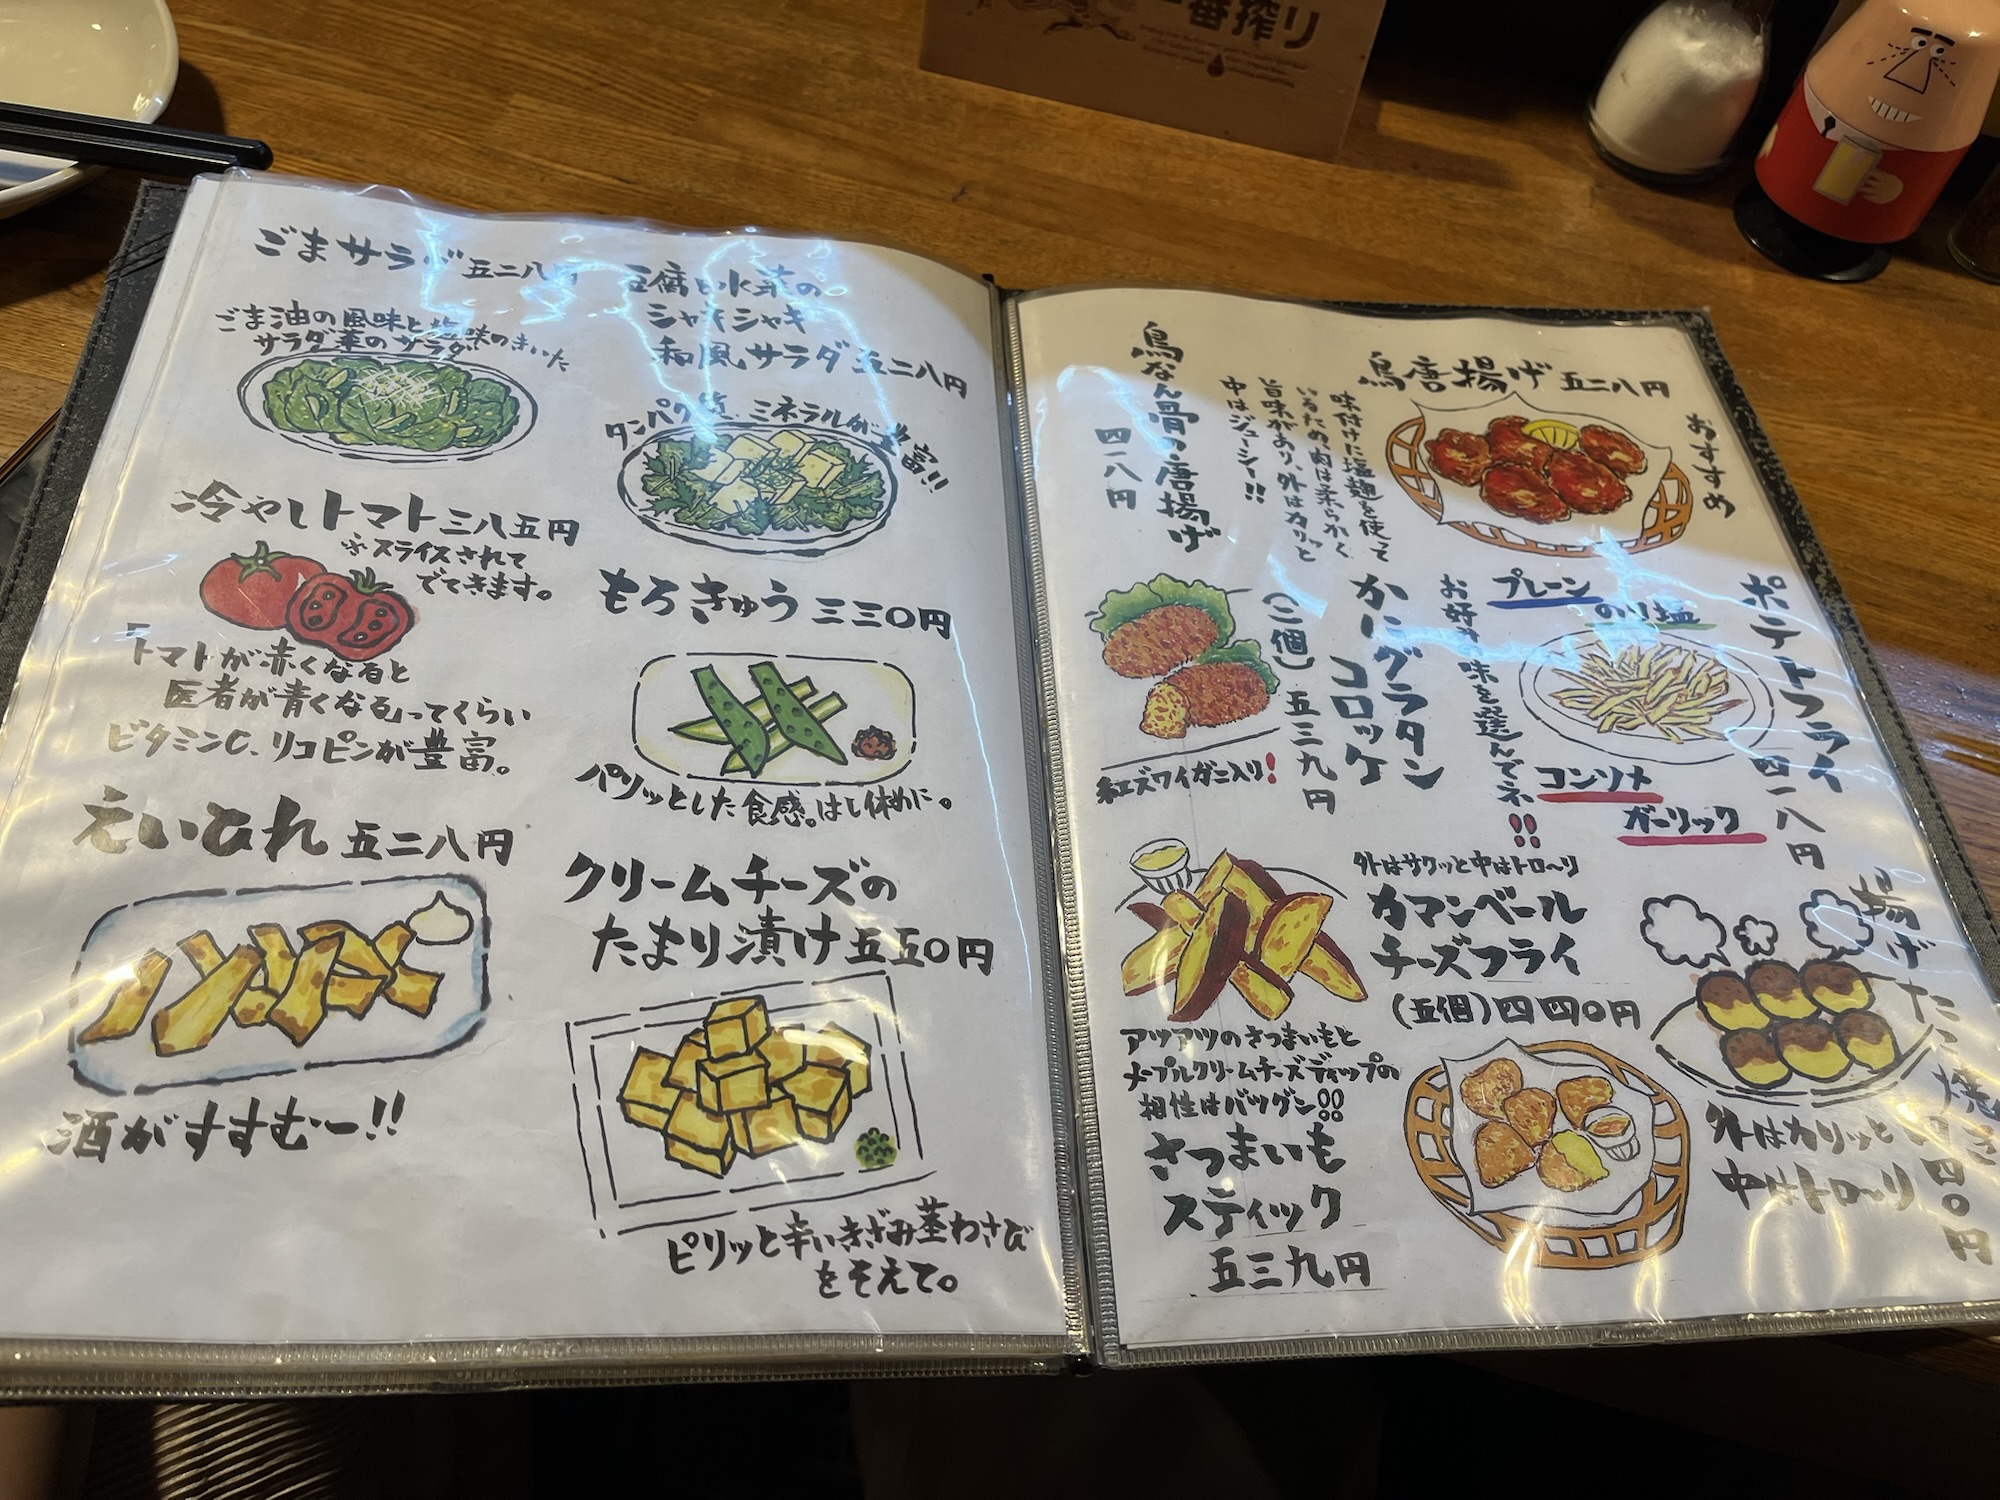 一番搾り
ごまサラダ 五二八円
ごま油の風味と塩味のきいた
サラダ菜のサラダ
豆腐と水菜の
シャキシャキ
和風サラダ 五二八円
タンパク質、ミネラルが豊富!!
冷やしトマト 三八五円
※スライスされて
でてきます。
「トマトが赤くなると
医者が青くなる」ってくらい
ビタミンC、リコピンが豊富。
もろきゅう 三三〇円
パリッとした食感。はし休めに。
えいひれ 五二八円
酒がすすむー!!
クリームチーズの
たまり漬け 五五〇円
ピリッと辛いきざみ茎わさび
をそえて。
鳥唐揚げ 五二八円
おすすめ
味付けに塩麹を使って
いるため、肉は柔らかく
旨味があり、外はカリッと
中はジューシー!!
鳥なん骨の唐揚げ
四一八円
ポテトフライ
四一八円
プレーン
のり塩
コンソメ
ガーリック
お好きな味を選んでネ!!
かにグラタン
コロッケ
(二個) 五三九円
紅ズワイガニ入り!
外はサクッと中はトロ〜リ
カマンベール
チーズフライ
(五個) 四四〇円
揚げたこ焼き
四四〇円
外はカリッと
中はトロ〜リ
アツアツのさつまいもと
メープルクリームチーズディップの
相性はバツグン!!
さつまいも
スティック
五三九円